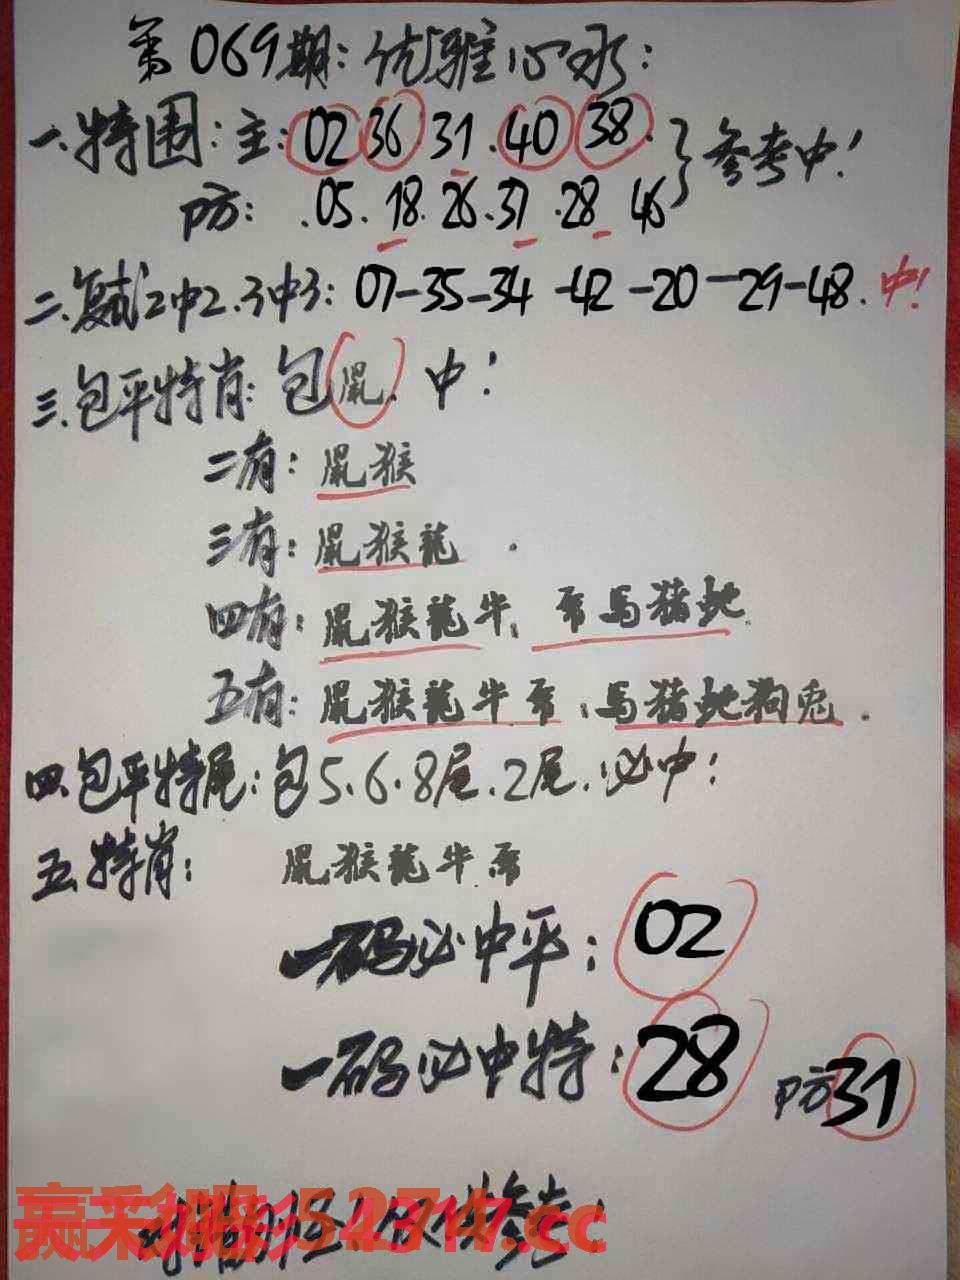 第069期:优雅心水:
一.特围:主:02 36 31.40 38.}参考中!
防:.05.18.26.37.28 46
二.复试2中2.3中3:07-35-34-42-20-29-48.中!
三.包平特肖:包鼠.中!
二有:鼠猴
三有:鼠猴龍.
四有:鼠猴龍牛.马猪蛇.
五有:鼠猴龍牛.马猪蛇狗兔.
四.包平特尾:包5.6.8尾.2尾.必中!
五.特肖:鼠猴龍牛
一码必中平:02
一码必中特:28 防31
赢彩吧:52717.cc